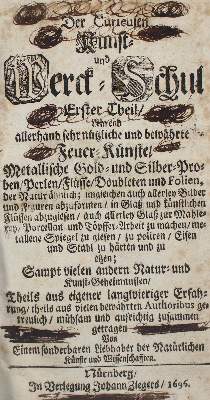 Der Curieusen
Kunst-
und
Werck-Schul
Erster Theil/
Lehrend
allerhand sehr nützliche und bewährte
Feuer-Künste/
Metallische Gold- und Silber-Pro-
ben/Perlen/Flüsse/Doubleten und Folien,
der Natur ähnlich; ingleichen auch allerley Bilder
und Figuren abzuformen/in Glaß und künstlichen
Flüssen abzugiesen/auch allerley Glaß zur Mahle-
rey/Porcellan und Töpffer-Arbeit zu machen/me-
tallene Spiegel zu giesen/zu poliren/Eisen
und Stahl zu härten und zu
etzen;
Sampt vielen andern Natur- und
Kunst-Geheimnussen/
Theils aus eigener langwieriger Erfah-
rung/theils aus vielen bewährten Authoribus ge-
treulich/mühsam und aufrichtig zusammen
getragen
Von
Einem sonderbaren Liebhaber der Natürlichen
Künste und Wissenschafften.
Nürnberg/
In Verlegung Johann Ziegers/1696.